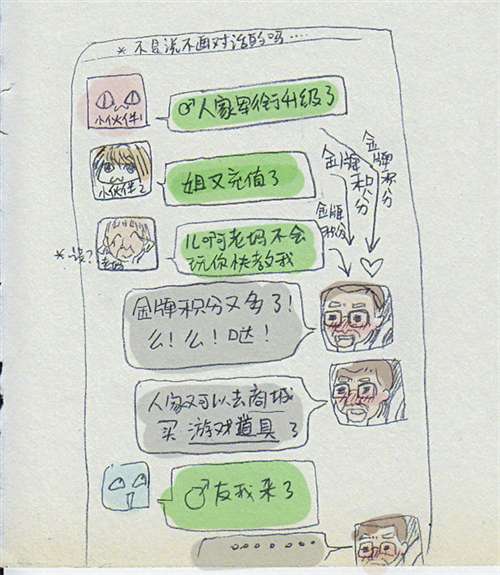 *不是说不画对话的吗…
小伙伴1
♂人家军衔升级了
小伙伴2
姐又充值了
金牌积分
金牌积分
金牌积分
*误?
老妈
儿啊老妈不会
玩你快教我
金牌积分又多了!
么!么!哒!
人家又可以去商城
买 游戏道具 了
♂友我来了
。。。。。。。